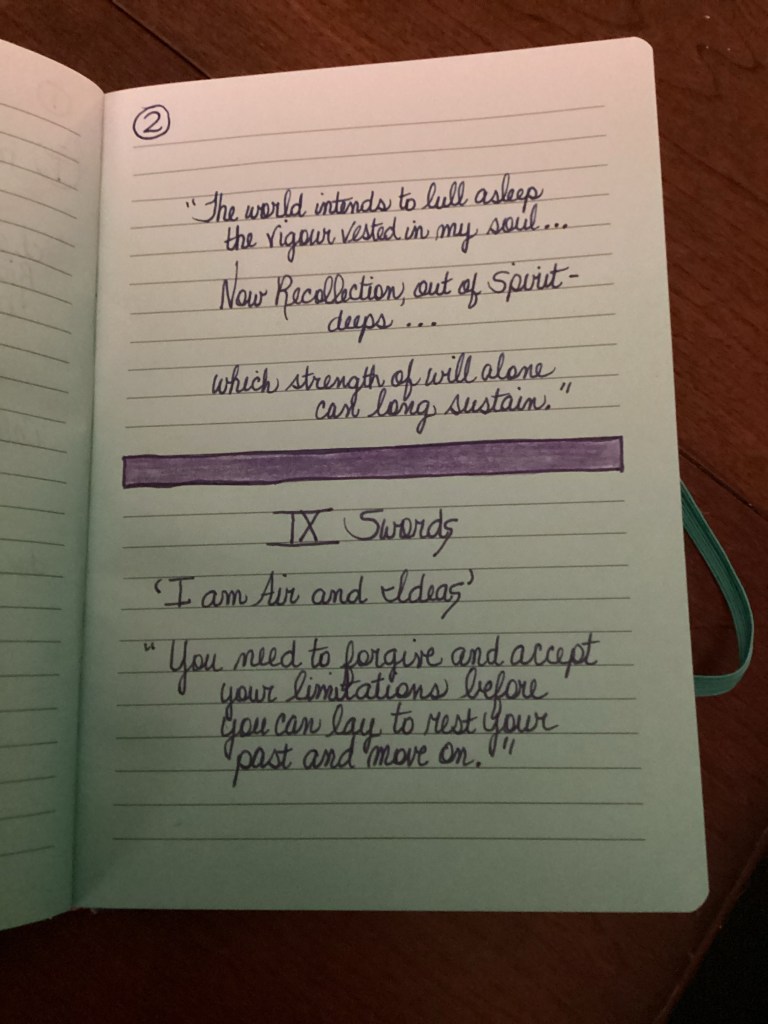 2
"The world intends to lull asleep
the vigour vested in my soul...
Now Recollection, out of Spirit-
deeps ...
which strength of will alone
can long sustain."
IX Swords
'I am Air and Ideas'
"You need to forgive and accept
your limitations before
you can lay to rest your
past and move on."